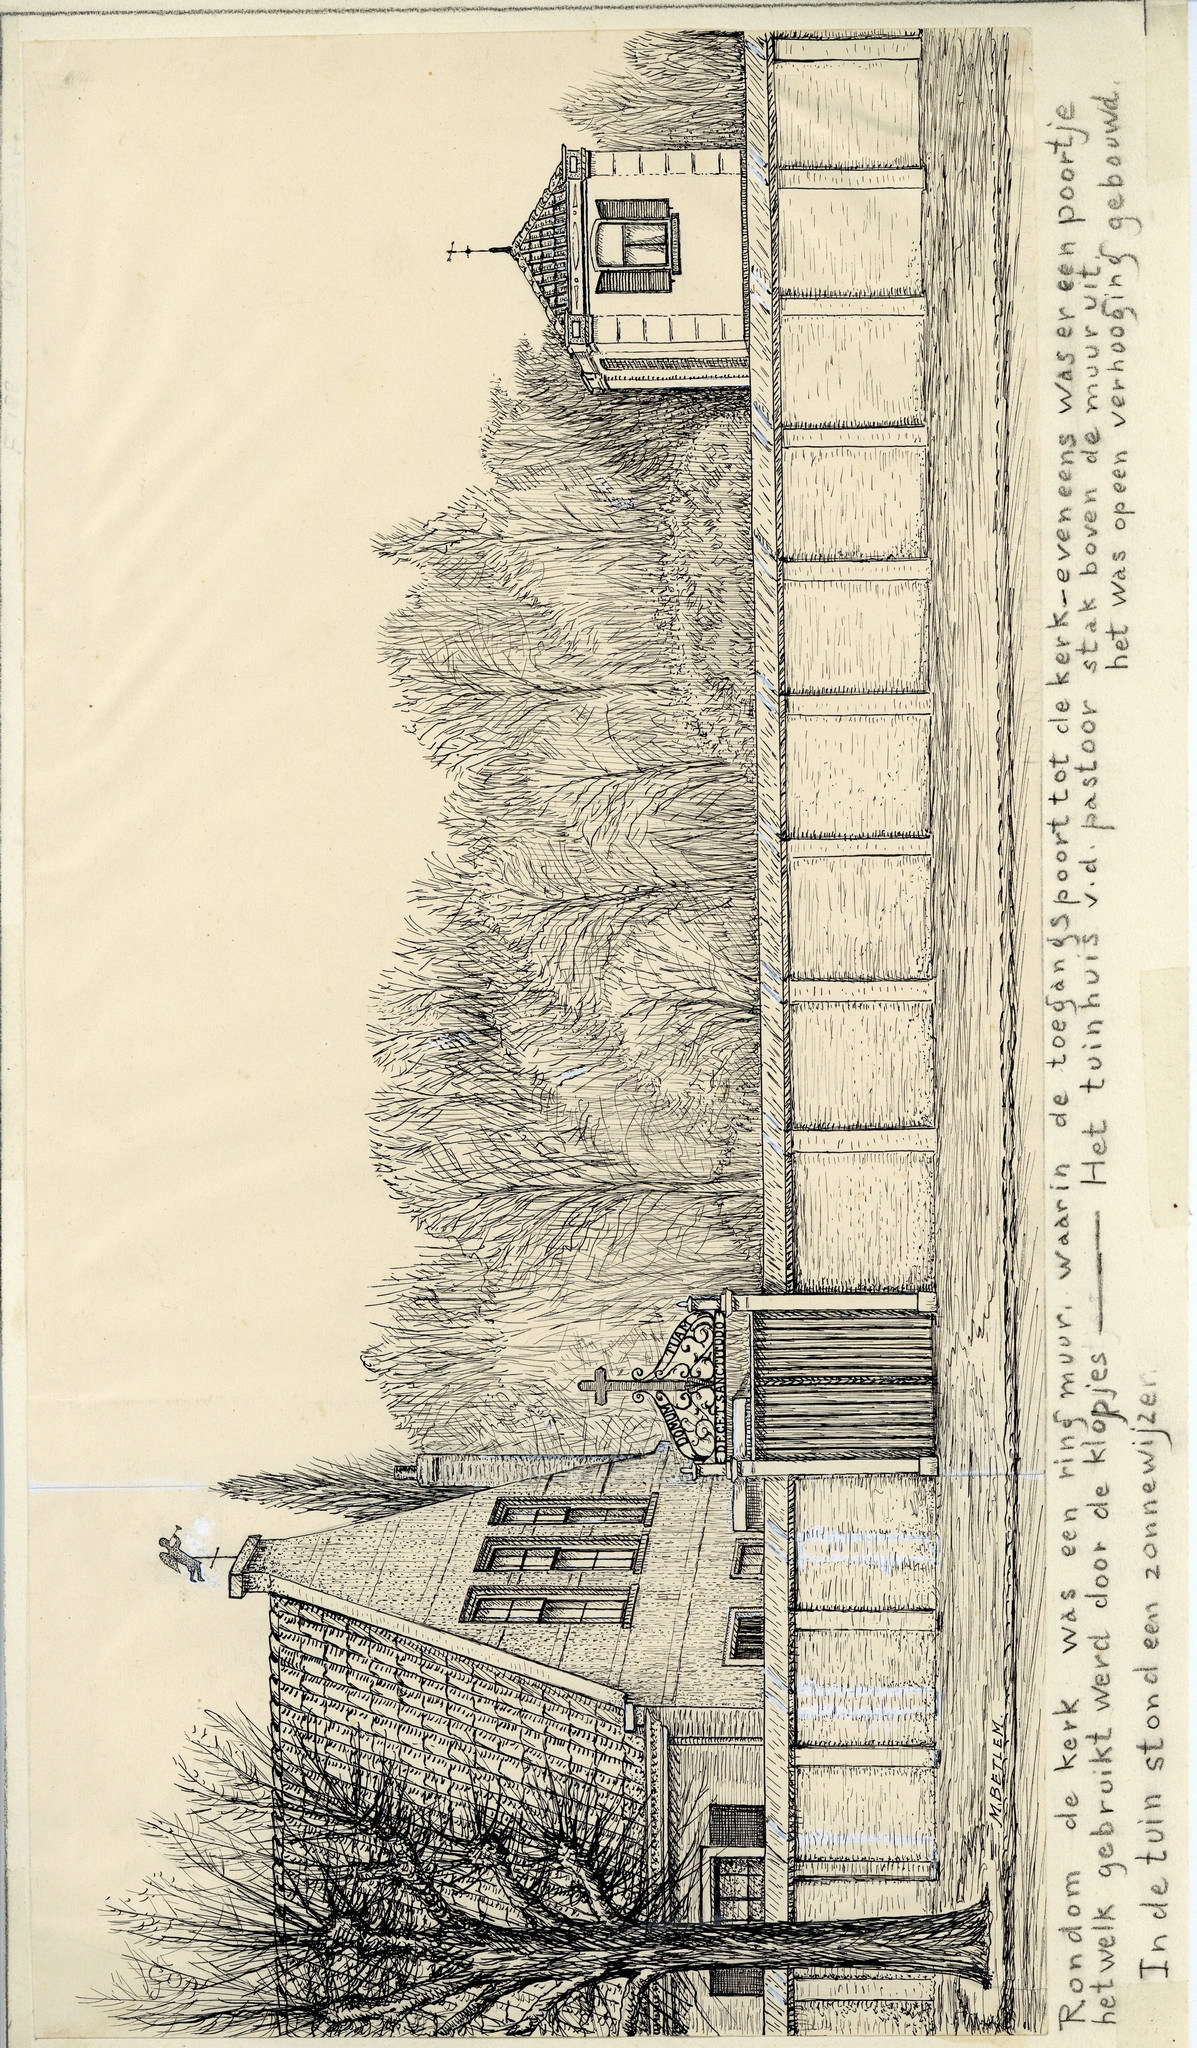 DOMUM TUAM
DECET SANCTITUDO
M. BETLEM.
Rondom de kerk was een ring muur, waarin de toegangspoort tot de kerk - eveneens was er een poortje
hetwelk gebruikt werd door de klopjes —— Het tuinhuis v.d. pastoor stak boven de muur uit,
het was op een verhooging gebouwd.
In de tuin stond een zonnewijzer.